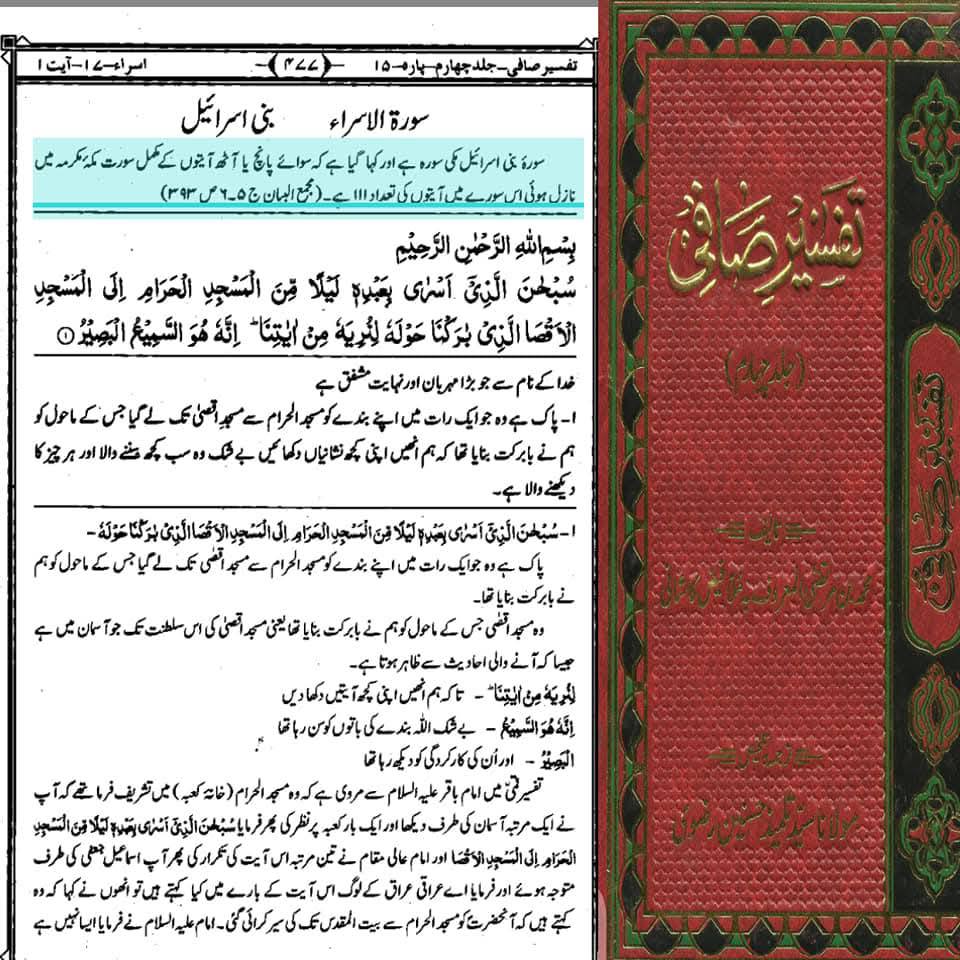 تفسیر صافی - جلد چہارم - پارہ - ۱۵
﴿۴۷۷﴾
اسراء - ۱۷ - آیت ۱
سورۃ الاسراء بنی اسرائیل
سورۂ بنی اسرائیل مکی سورہ ہے اور کہا گیا ہے کہ سوائے پانچ یا آٹھ آیتوں کے مکمل سورت مکۂ مکرمہ میں
نازل ہوئی اس سورے میں آیتوں کی تعداد ۱۱۱ ہے۔ (مجمع البیان ج ۵-۶ ص ۳۹۳)
بِسْمِ اللهِ الرَّحْمٰنِ الرَّحِيْمِ
سُبْحٰنَ الَّذِيْٓ اَسْرٰى بِعَبْدِهٖ لَيْلًا مِّنَ الْمَسْجِدِ الْحَرَامِ اِلَى الْمَسْجِدِ
الْاَقْصَا الَّذِيْ بٰرَكْنَا حَوْلَهٗ لِنُرِيَهٗ مِنْ اٰيٰتِنَا ؕ اِنَّهٗ هُوَ السَّمِيْعُ الْبَصِيْرُ ①
خدا کے نام سے جو بڑا مہربان اور نہایت مشفق ہے
۱- پاک ہے وہ جو ایک رات میں اپنے بندے کو مسجد الحرام سے مسجد اقصیٰ تک لے گیا جس کے ماحول کو
ہم نے بابرکت بنایا تھا کہ ہم انھیں اپنی کچھ نشانیاں دکھائیں بے شک وہ سب کچھ سننے والا اور ہر چیز کا
دیکھنے والا ہے۔
۱- سُبْحٰنَ الَّذِيْٓ اَسْرٰى بِعَبْدِهٖ لَيْلًا مِّنَ الْمَسْجِدِ الْحَرَامِ اِلَى الْمَسْجِدِ الْاَقْصَا الَّذِيْ بٰرَكْنَا حَوْلَهٗ -
پاک ہے وہ جو ایک رات میں اپنے بندے کو مسجد الحرام سے مسجد اقصٰی تک لے گیا جس کے ماحول کو ہم
نے بابرکت بنایا تھا۔
وہ مسجد اقصٰی جس کے ماحول کو ہم نے بابرکت بنایا تھا یعنی مسجد اقصیٰ کی اس سلطنت تک جو آسمان میں ہے
جیسا کہ آنے والی احادیث سے ظاہر ہوتا ہے۔
لِنُرِيَهٗ مِنْ اٰيٰتِنَا ؕ - تاکہ ہم انھیں اپنی کچھ آیتیں دکھا دیں
اِنَّهٗ هُوَ السَّمِيْعُ - بے شک اللہ بندے کی باتوں کو سن رہا تھا
الْبَصِيْرُ - اور اُن کی کارکردگی کو دیکھ رہا تھا
تفسیر قمیؒ میں امام باقر علیہ السلام سے مروی ہے کہ وہ مسجد الحرام (خانۂ کعبہ) میں تشریف فرما تھے کہ آپ
نے ایک مرتبہ آسمان کی طرف دیکھا اور ایک بار کعبہ پر نظر کی پھر فرمایا سُبْحٰنَ الَّذِيْٓ اَسْرٰى بِعَبْدِهٖ لَيْلًا مِّنَ الْمَسْجِدِ
الْحَرَامِ اِلَى الْمَسْجِدِ الْاَقْصَا اور امام عالی مقام نے تین مرتبہ اس آیت کی تکرار کی پھر آپ اسماعیل جعفی کی طرف
متوجہ ہوئے اور فرمایا اے عراقی عراق کے لوگ اس آیت کے بارے میں کیا کہتے ہیں تو انھوں نے کہا کہ وہ
کہتے ہیں کہ آنحضرتؐ کو مسجد الحرام سے بیت المقدس تک کی سیر کرائی گئی۔ امام علیہ السلام نے فرمایا ایسا نہیں ہے
تفسیرِ صافی
(جلد چہارم)
تالیف
محمد بن مرتضیٰ المعروف بہ ملا فیض کاشانی
ترجمہ و تلخیص
مولانا سید تلمیذ حسنین رضوی
تفسیر صافی